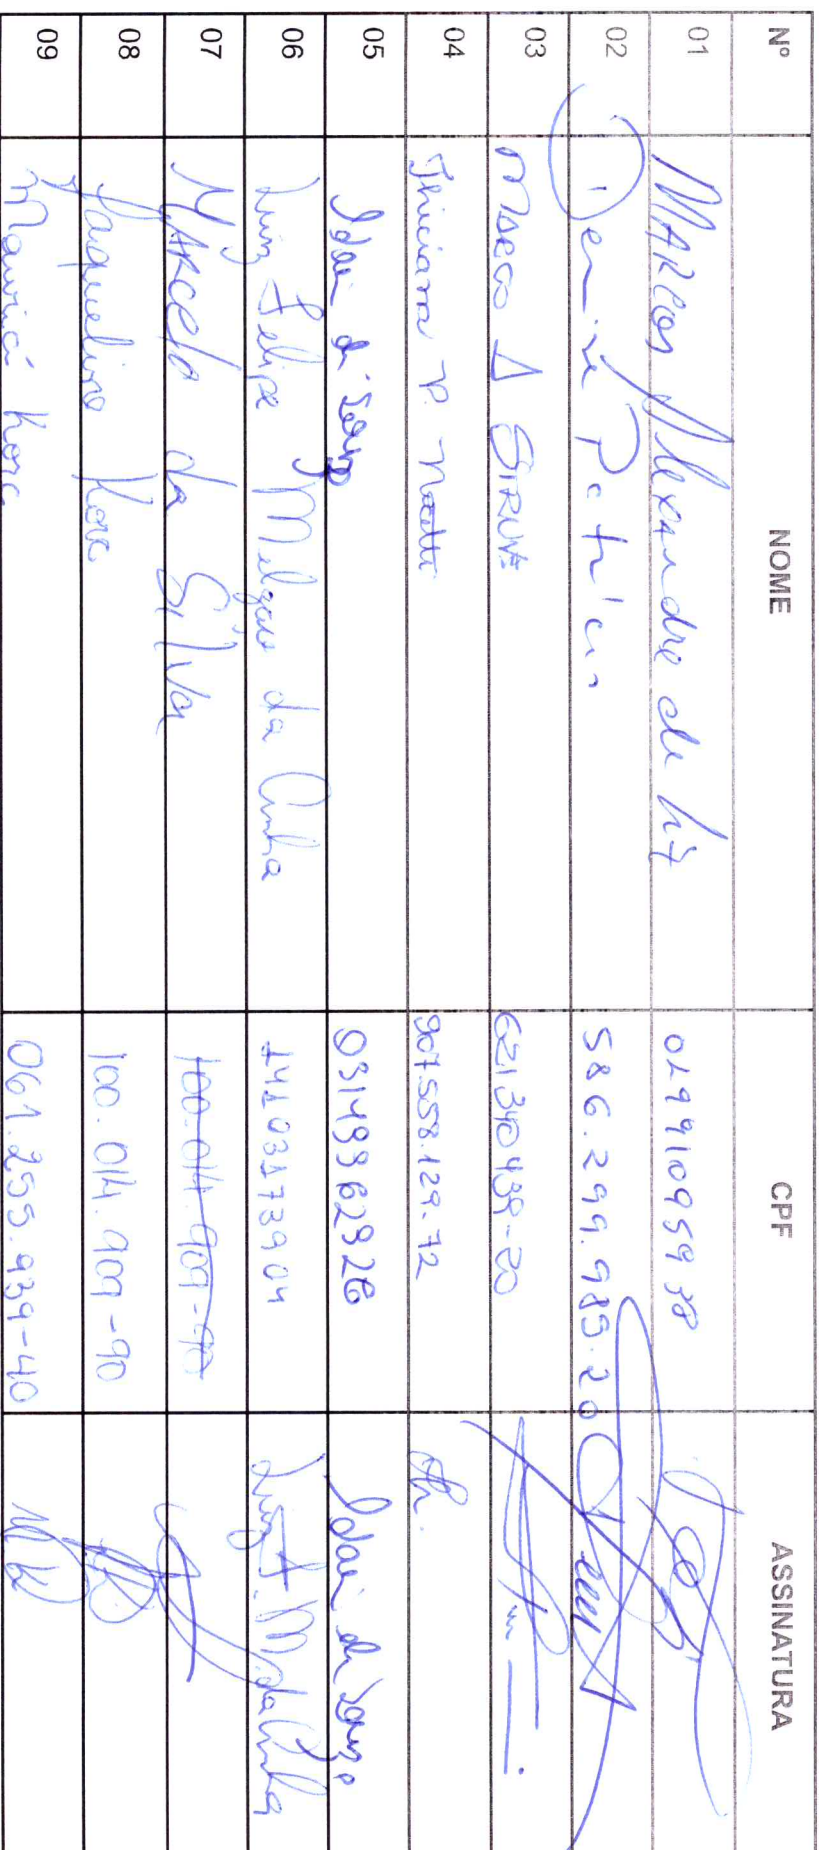 Nº NOME CPF ASSINATURA
01 MARCOS Alexandre de 01991095938
02 Denise Patrício 586.299.989.20
03 MARCO A STRUVE 621340439-20
04 Thiciana P. 907.558.129-72
05 Idai de Souza 03149962926 Idai de Souza
06 Luiz Felipe Melgáio da Cunha 14103173904 Luiz F. M. da Cunha
07 MARCELO da SILVA 100.014.909-90
08 Jaqueline Kora 100.014.909-90
09 Maurici Kora 061.255.939-40 MK